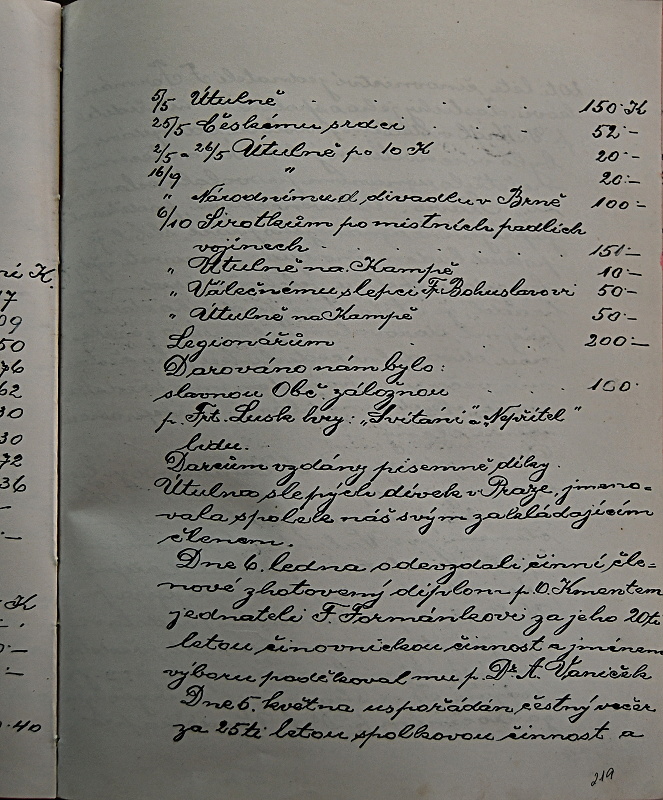 ní K.
17
09
50
76
62
30
30
72
36
K
0.40
5/5 Útulně . . . . 150·K
25/5 Českému srdci . . . 52·–
2/5 a 26/5 Útulně po 10 K 20·–
16/9 " 20·–
" Národnímu d. divadlu v Brně 100·–
6/10 Sirotkům po místních padlích
vojínech . . . . 151·–
" Útulně na Kampě 10·–
" Válečnému slepci F. Bohuslavovi 50·–
" Útulně na Kampě 50·–
Legionářům 200·–
Darováno nám bylo:
slavnou Obč. záložnou . . . 100·
p. Frt. Lusk hry: „Svítání" a „Nepřítel"
lidu.
Dárcům vzdány písemně díky.
Útulna slepých dívek v Praze, jmeno=
vala spolek náš svým zakládajícím
členem.
Dne 6. ledna odevzdali činní čle=
nové zhotovený diplom p. O. Kmentem
jednateli F. Formánkovi za jeho 20ti
letou činovnickou činnost a jménem
výboru poděkoval mu p. Dr. A. Vaníček
Dne 5. května uspořádán čestný večer
za 25ti letou spolkovou činnost a
219